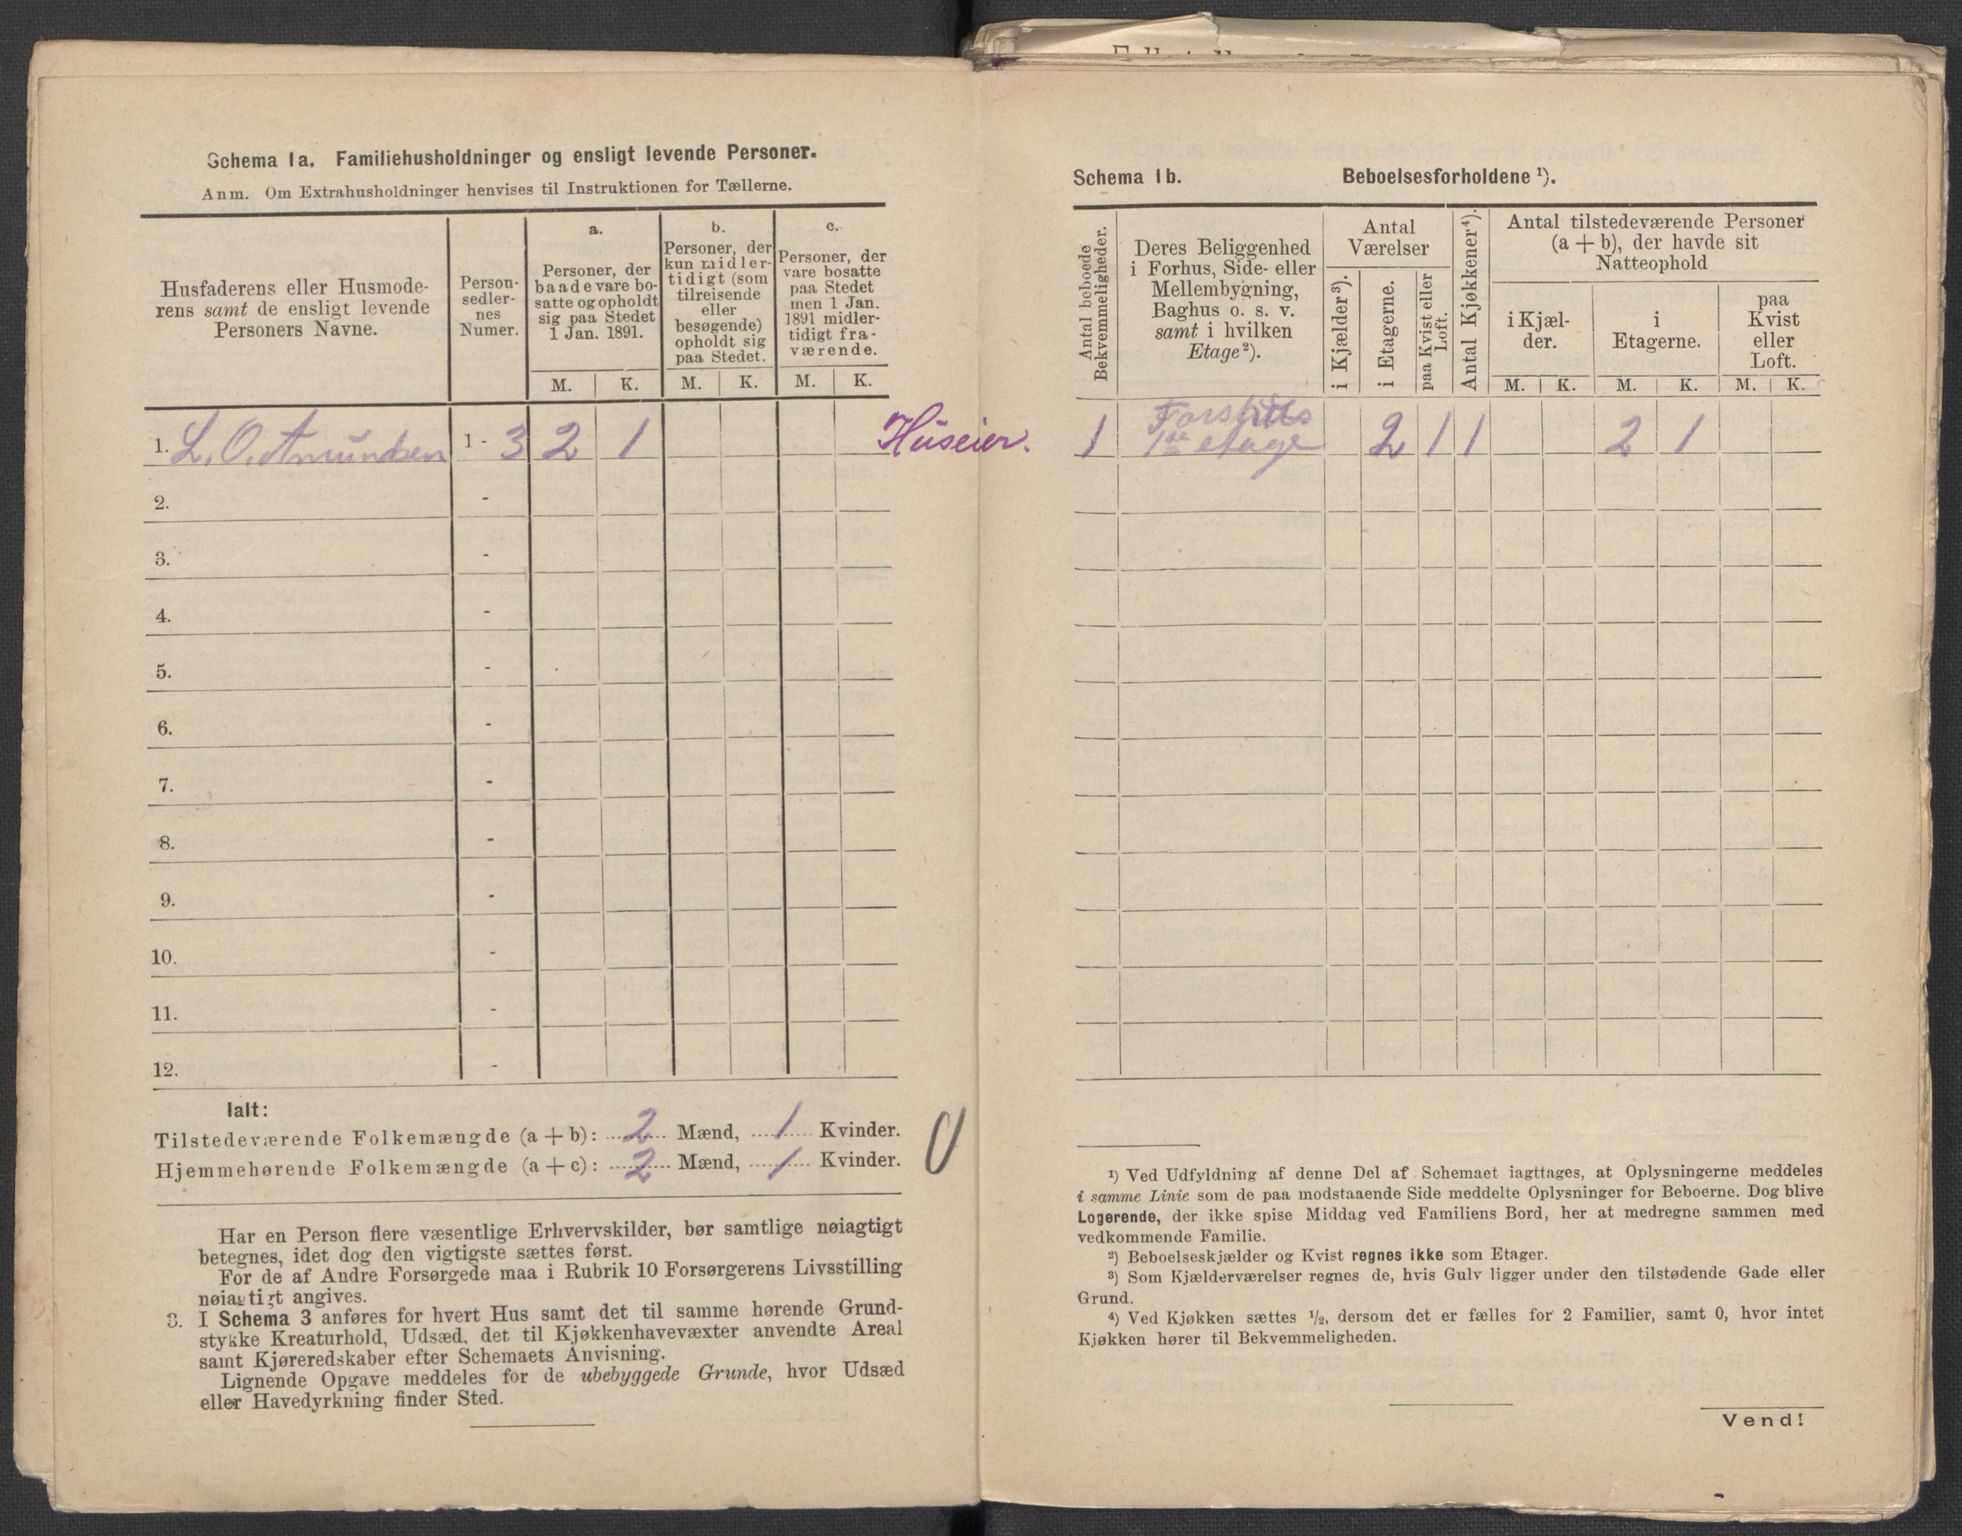 Schema 1a. Familiehusholdninger og ensligt levende Personer.
Anm. Om Extrahusholdninger henvises til Instruktionen for Tællerne.
Husfaderens eller Husmode-
rens samt de ensligt levende
Personers Navne.
Person-
sedler-
nes
Numer.
a.
Personer, der
baade vare bo-
satte og opholdt
sig paa Stedet
1 Jan. 1891.
b.
Personer, der
kun midler-
tidigt (som
tilreisende
eller
besøgende)
opholdt sig
paa Stedet.
c.
Personer, der
vare bosatte
paa Stedet
men 1 Jan.
1891 midler-
tidigt fra-
værende.
M. K. M. K. M. K.
1. L. O. Amundsen 1 - 3 2 1 Huseier.
2. -
3. -
4. -
5. -
6. -
7. -
8. -
9. -
10. -
11. -
12. -
Ialt:
Tilstedeværende Folkemængde (a + b): 2 Mænd, 1 Kvinder.
Hjemmehørende Folkemængde (a + c): 2 Mænd, 1 Kvinder.
Har en Person flere væsentlige Erhvervskilder, bør samtlige nøiagtigt
betegnes, idet dog den vigtigste sættes først.
For de af Andre Forsørgede maa i Rubrik 10 Forsørgerens Livsstilling
nøiagtigt angives.
3. I Schema 3 anføres for hvert Hus samt det til samme hørende Grund-
stykke Kreaturhold, Udsæd, det til Kjøkkenhavevæxter anvendte Areal
samt Kjøreredskaber efter Schemaets Anvisning.
Lignende Opgave meddeles for de ubebyggede Grunde, hvor Udsæd
eller Havedyrkning finder Sted.
Schema 1b. Beboelsesforholdene ¹).
Antal beboede
Bekvemmeligheder.
Deres Beliggenhed
i Forhus, Side- eller
Mellembygning,
Baghus o. s. v.
samt i hvilken
Etage²).
Antal
Værelser
i Kjælder³).
i Etagerne.
paa Kvist eller
Loft.
Antal Kjøkkener⁴).
Antal tilstedeværende Personer
(a + b), der havde sit
Natteophold
i Kjæl-
der.
i
Etagerne.
paa
Kvist
eller
Loft.
M. K. M. K. M. K.
1 1ste etage 2 1 1 2 1
¹) Ved Udfyldning af denne Del af Schemaet iagttages, at Oplysningerne meddeles
i samme Linie som de paa modstaaende Side meddelte Oplysninger for Beboerne. Dog blive
Logerende, der ikke spise Middag ved Familiens Bord, her at medregne sammen med
vedkommende Familie.
²) Beboelseskjælder og Kvist regnes ikke som Etager.
³) Som Kjælderværelser regnes de, hvis Gulv ligger under den tilstødende Gade eller
Grund.
⁴) Ved Kjøkken sættes ½, dersom det er fælles for 2 Familier, samt 0, hvor intet
Kjøkken hører til Bekvemmeligheden.
Vend!